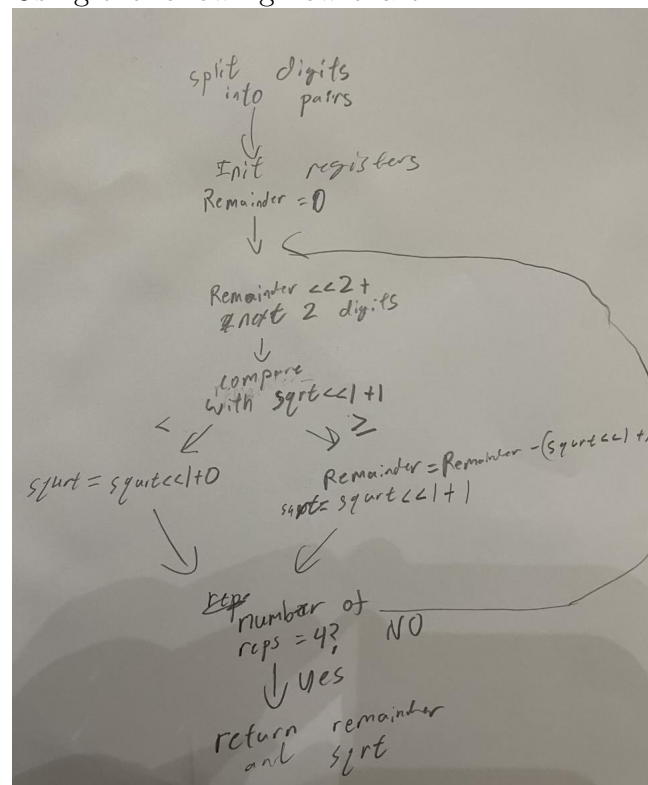 split digits
into pairs
Init registers
Remainder = 0
Remainder <<2 +
next 2 digits
compare
with sqrt<<1 +1
< ≥
squrt = squrt<<1+0
Remainder = Remainder - (squrt<<1 +
sqrt = squrt<<1 + 1
number of
reps = 4?
NO
yes
return remainder
and sqrt